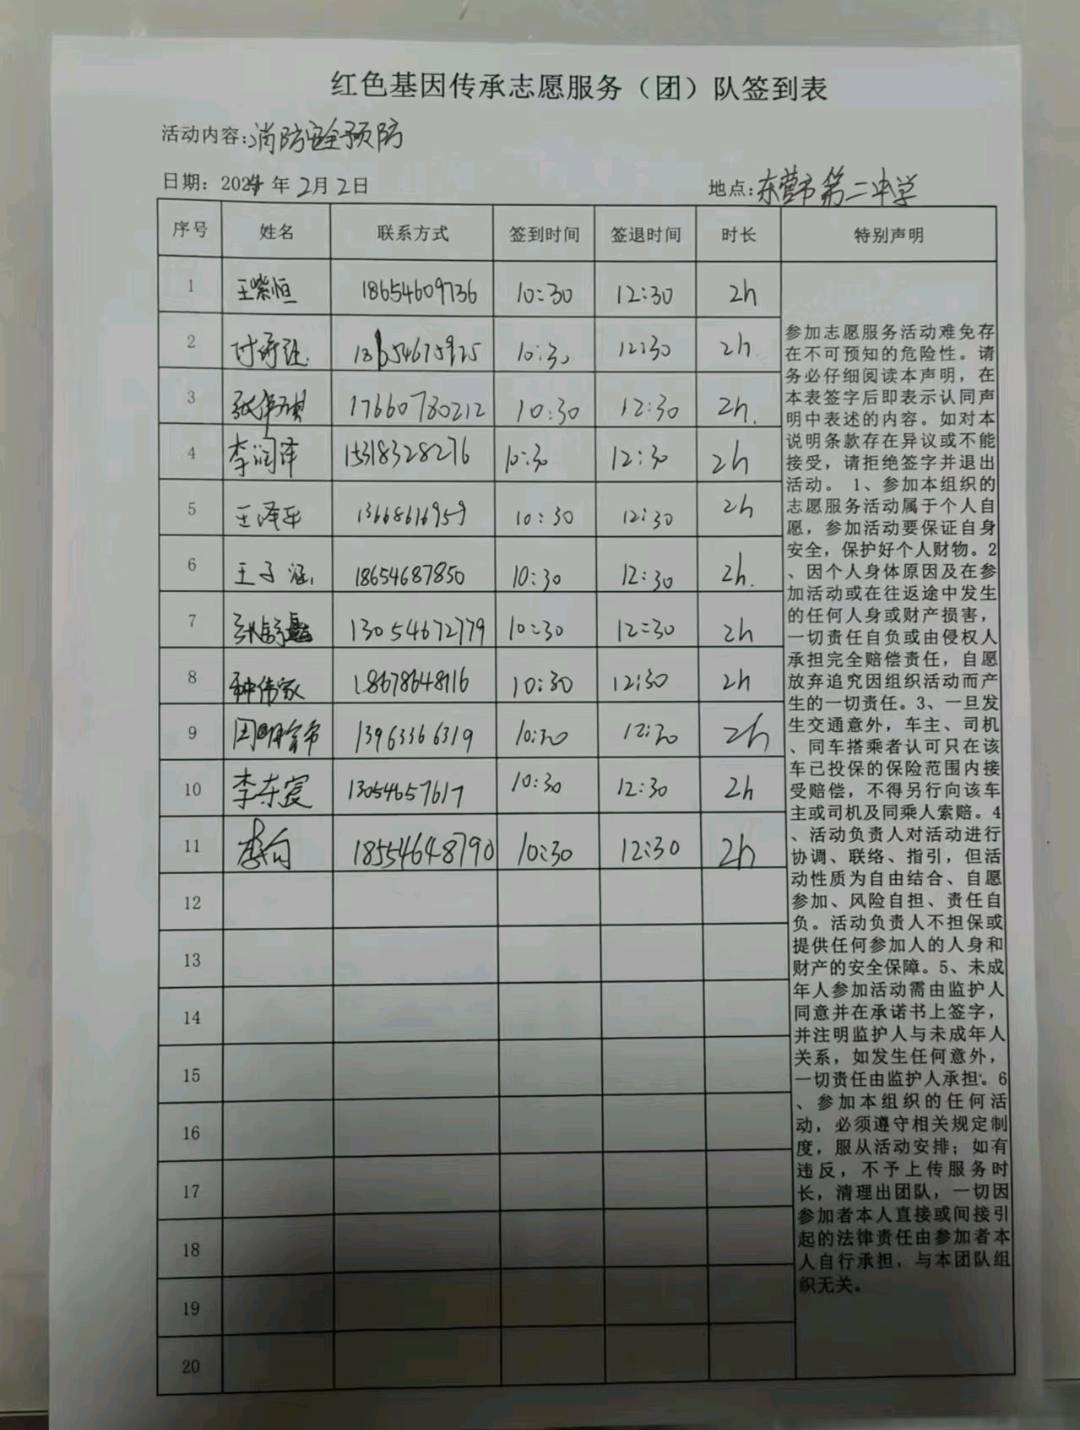 红色基因传承志愿服务（团）队签到表
活动内容:消防安全预防
日期：2024年2月2日 地点:东营市第二中学
序号 姓名 联系方式 签到时间 签退时间 时长 特别声明
1 王紫恒 18654609736 10:30 12:30 2h
2 10:30 12:30 2h
3 17660780212 10:30 12:30 2h.
4 李润泽 15318328276 10:30 12:30 2h
5 王泽平 13668616959 10:30 12:30 2h
6 王子涵 18654687850 10:30 12:30 2h.
7 13054672779 10:30 12:30 2h
8 种传家 18678648116 10:30 12:30 2h
9 13963366319 10:30 12:30 2h
10 李东宸 13054657617 10:30 12:30 2h
11 18554648790 10:30 12:30 2h
12
13
14
15
16
17
18
19
20
参加志愿服务活动难免存
在不可预知的危险性。请
务必仔细阅读本声明，在
本表签字后即表示认同声
明中表述的内容。如对本
说明条款存在异议或不能
接受，请拒绝签字并退出
活动。 1、参加本组织的
志愿服务活动属于个人自
愿，参加活动要保证自身
安全，保护好个人财物。2
、因个人身体原因及在参
加活动或在往返途中发生
的任何人身或财产损害，
一切责任自负或由侵权人
承担完全赔偿责任，自愿
放弃追究因组织活动而产
生的一切责任。3、一旦发
生交通意外，车主、司机
、同车搭乘者认可只在该
车已投保的保险范围内接
受赔偿，不得另行向该车
主或司机及同乘人索赔。4
、活动负责人对活动进行
协调、联络、指引，但活
动性质为自由结合、自愿
参加、风险自担、责任自
负。活动负责人不担保或
提供任何参加人的人身和
财产的安全保障。5、未成
年人参加活动需由监护人
同意并在承诺书上签字，
并注明监护人与未成年人
关系，如发生任何意外，
一切责任由监护人承担。6
、参加本组织的任何活
动，必须遵守相关规定制
度，服从活动安排；如有
违反，不予上传服务时
长，清理出团队，一切因
参加者本人直接或间接引
起的法律责任由参加者本
人自行承担，与本团队组
织无关。